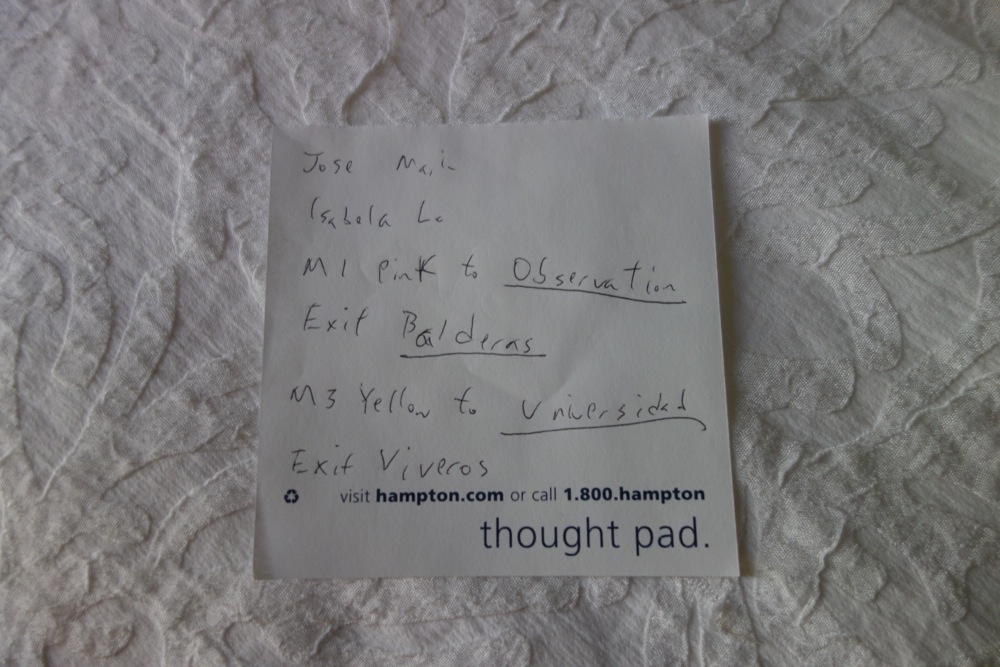 Jose
Isabela La
M1 Pink to Observation
Exit Balderas
M3 Yellow to Universidad
Exit Viveros
visit hampton.com or call 1.800.hampton
thought pad.